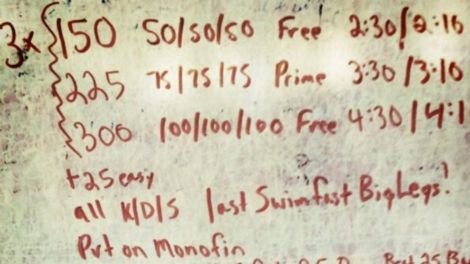 3x { 150 50/50/50 Free 2:30/2:10
225 75/75/75 Prime 3:30/3:10
300 100/100/100 Free 4:30/4:1
+25 easy
all K/D/S last Swim fast Big Legs!
Put on Monofin
Best 25